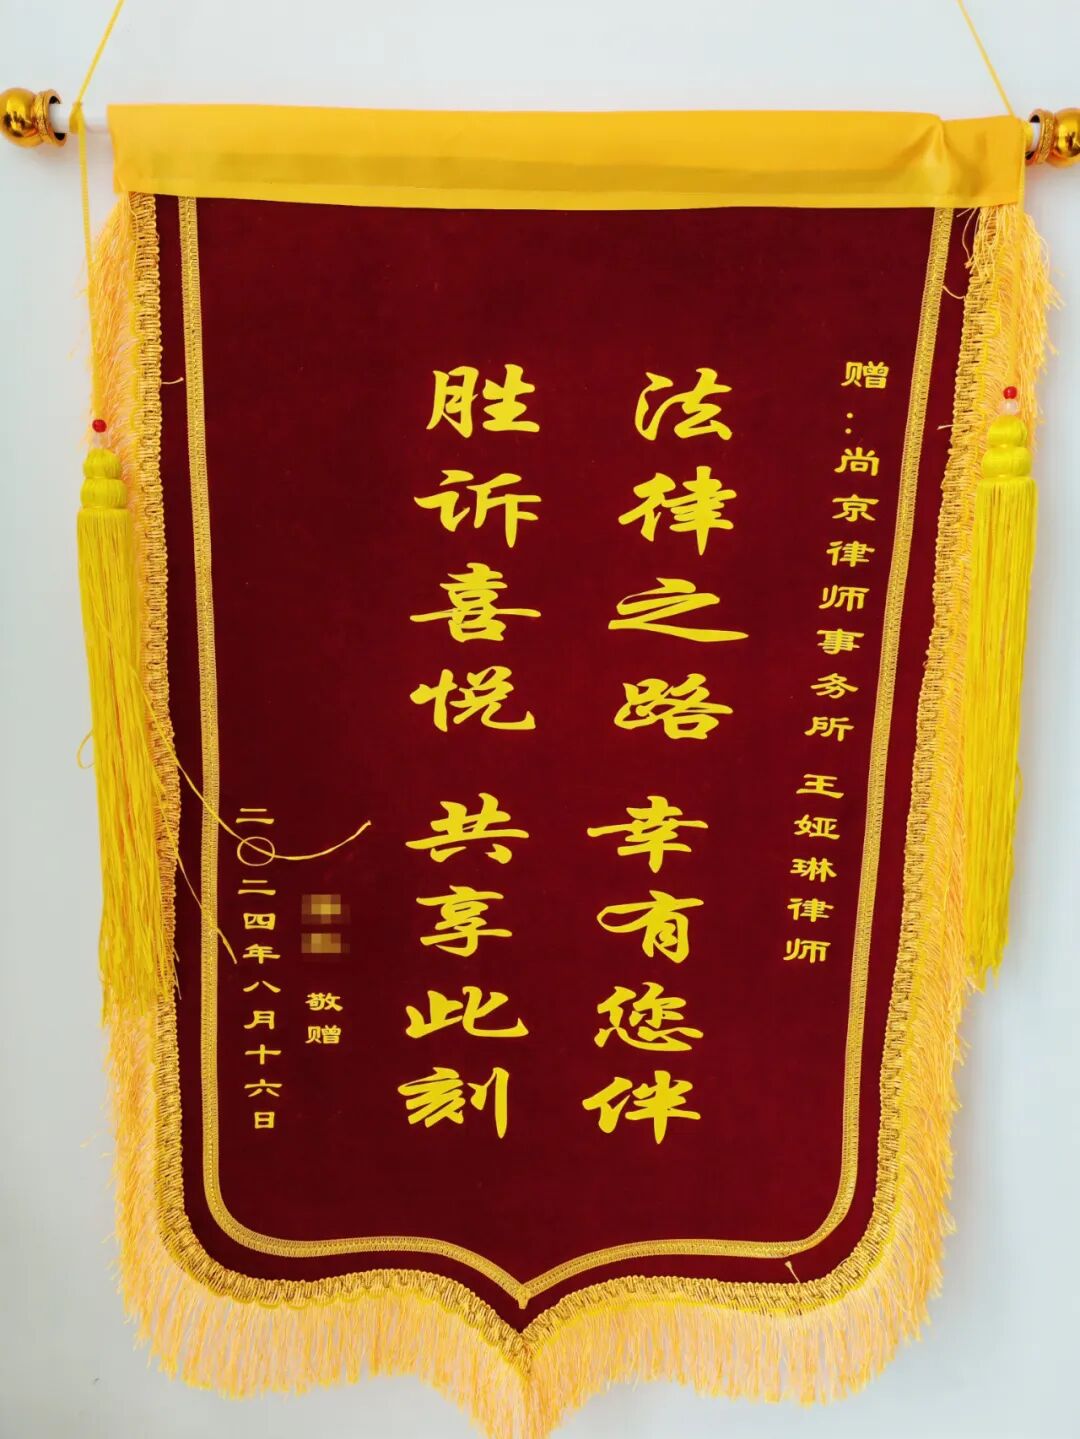 赠：尚京律师事务所 王娅琳律师
法律之路 幸有您伴
胜诉喜悦 共享此刻
敬赠
二〇二四年八月十六日